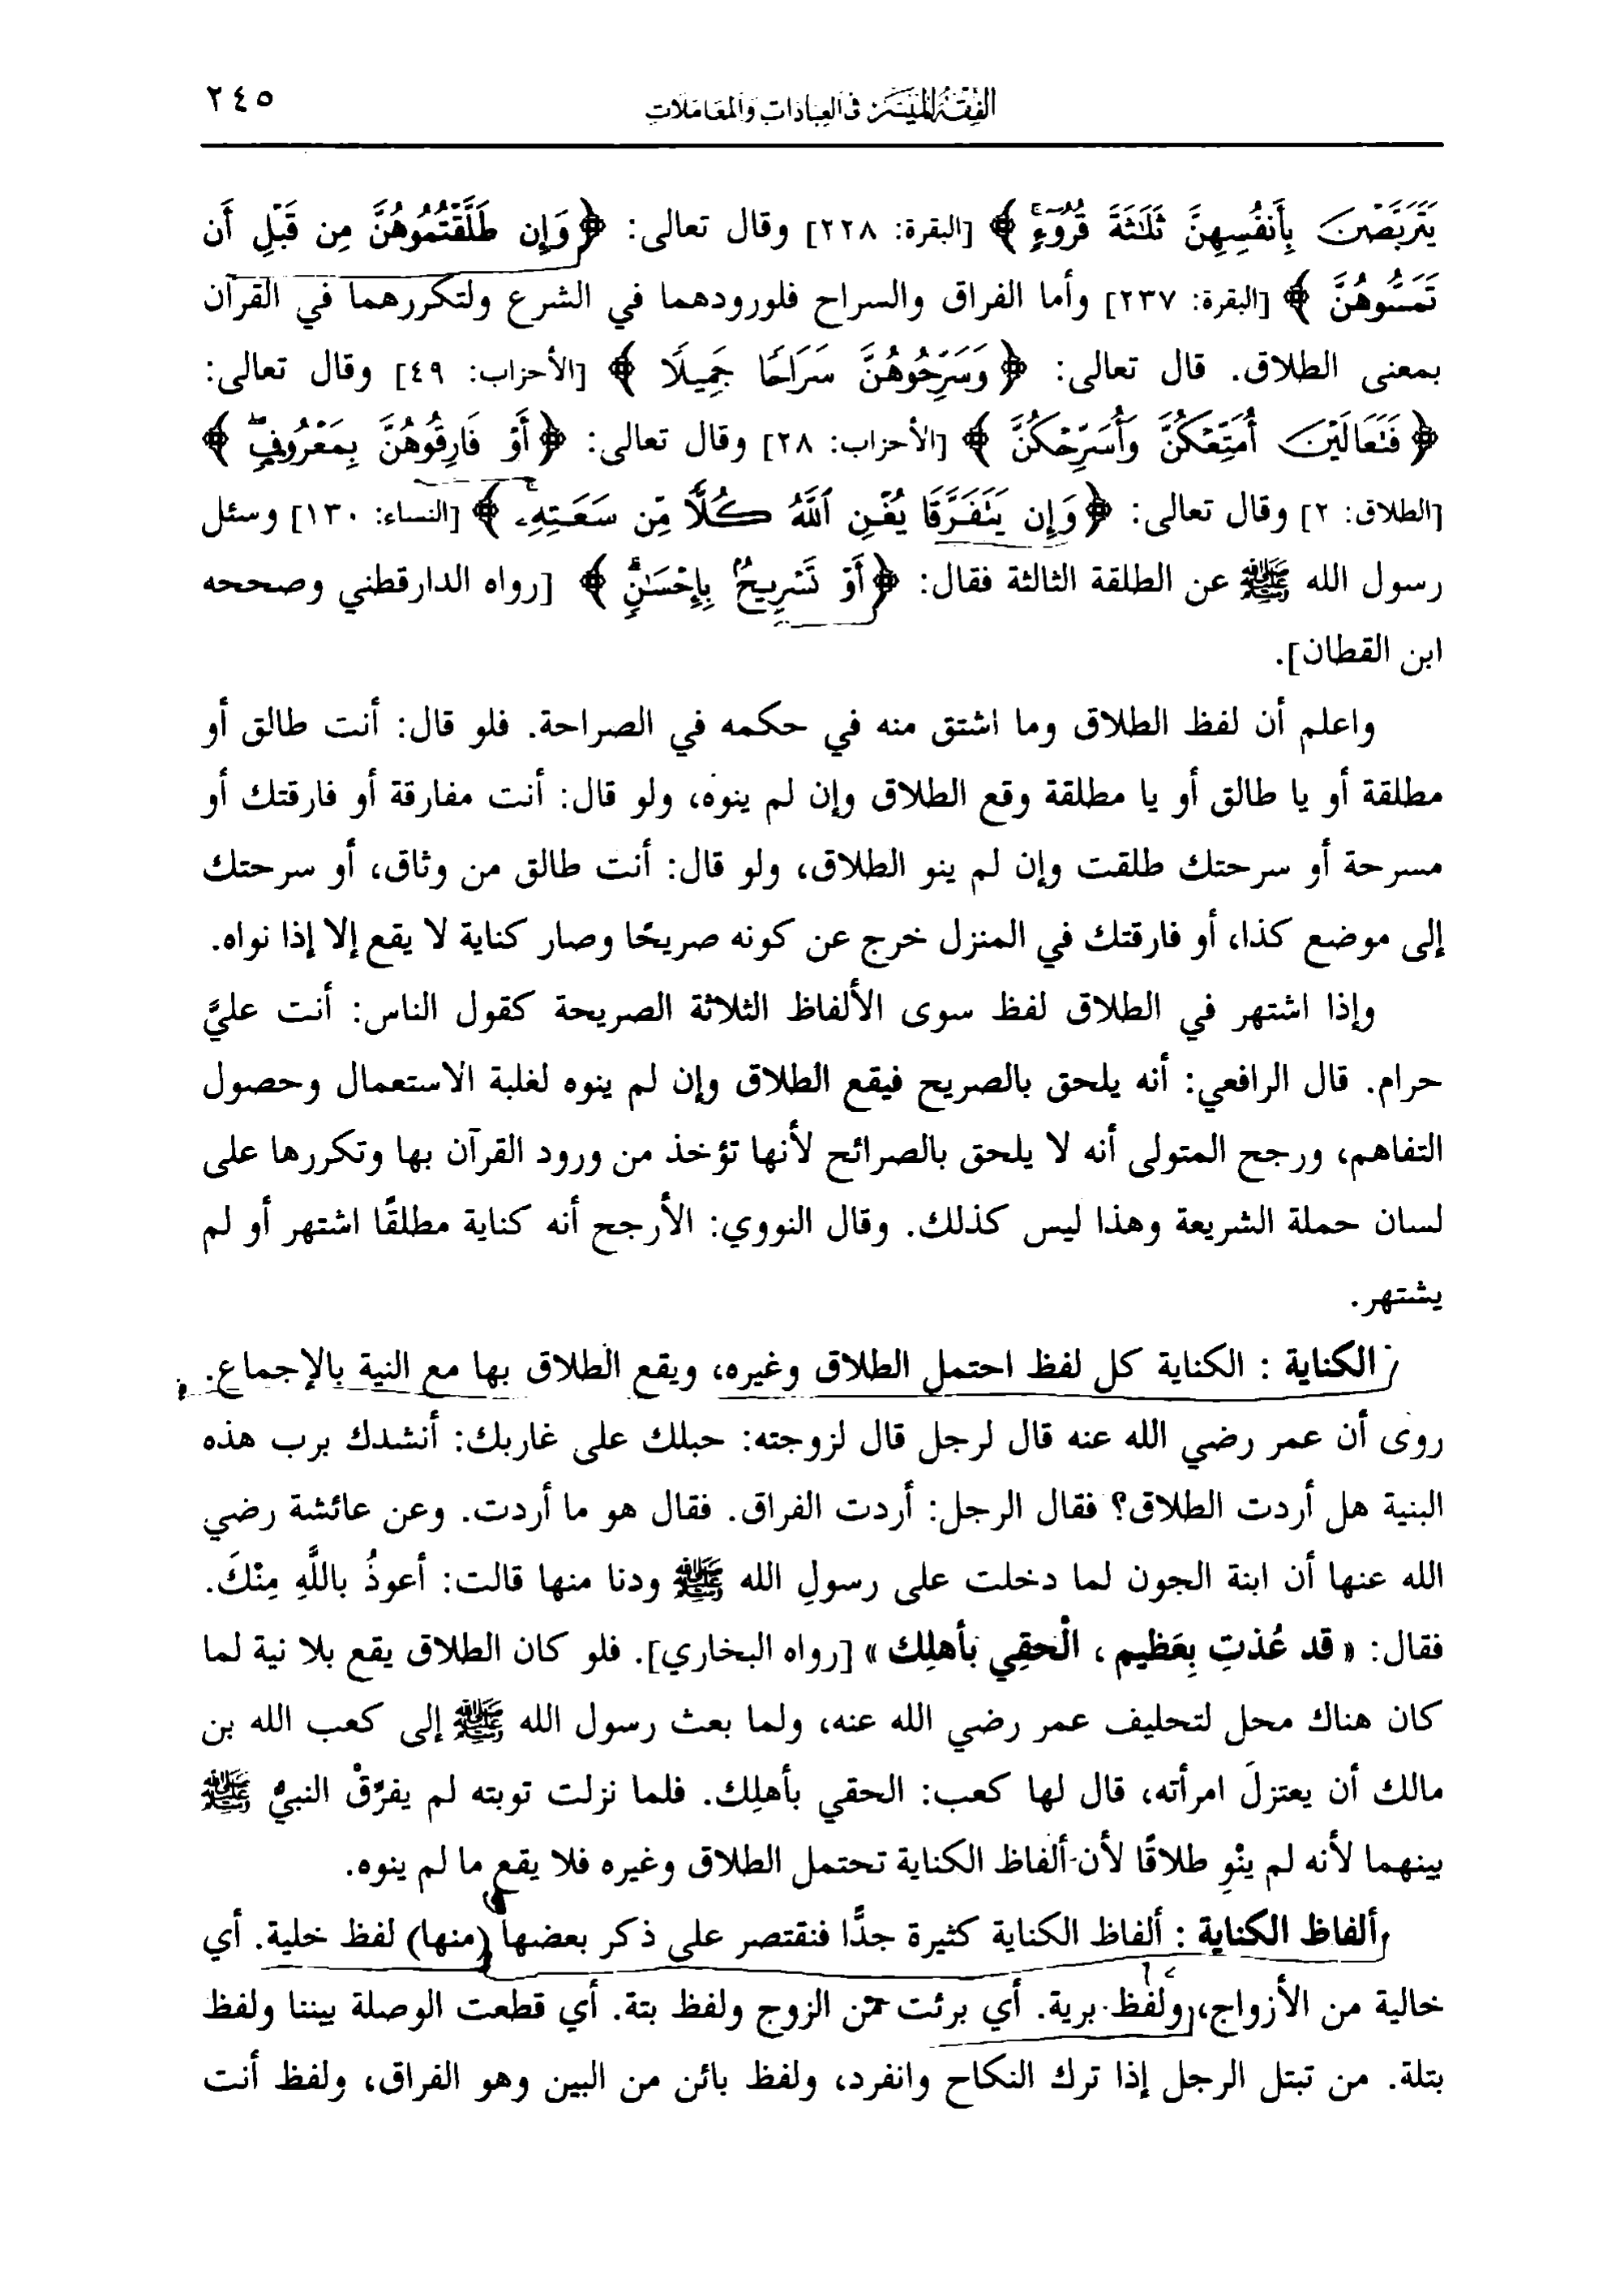 الفقه الميسر في العبادات والمعاملات ٢٤٥
يَتَرَبَّصْنَ بِأَنفُسِهِنَّ ثَلَاثَةَ قُرُوءٍ ﴾ [البقرة: ٢٢٨] وقال تعالى: ﴿ وَإِن طَلَّقْتُمُوهُنَّ مِن قَبْلِ أَن
تَمَسُّوهُنَّ ﴾ [البقرة: ٢٣٧] وأما الفراق والسراح فلورودهما في الشرع ولتكررهما في القرآن
بمعنى الطلاق. قال تعالى: ﴿ وَسَرِّحُوهُنَّ سَرَاحًا جَمِيلًا ﴾ [الأحزاب: ٤٩] وقال تعالى:
﴿ فَتَعَالَيْنَ أُمَتِّعْكُنَّ وَأُسَرِّحْكُنَّ ﴾ [الأحزاب: ٢٨] وقال تعالى: ﴿ أَوْ فَارِقُوهُنَّ بِمَعْرُوفٍ ﴾
[الطلاق: ٢] وقال تعالى: ﴿ وَإِن يَتَفَرَّقَا يُغْنِ ٱللَّهُ كُلًّا مِّن سَعَتِهِ ﴾ [النساء: ١٣٠] وسئل
رسول الله ﷺ عن الطلقة الثالثة فقال: ﴿ أَوْ تَسْرِيحٌ بِإِحْسَٰنٍ ﴾ [رواه الدارقطني وصححه
ابن القطان].
واعلم أن لفظ الطلاق وما اشتق منه في حكمه في الصراحة. فلو قال: أنت طالق أو
مطلقة أو يا طالق أو يا مطلقة وقع الطلاق وإن لم ينوه، ولو قال: أنت مفارقة أو فارقتك أو
مسرحة أو سرحتك طلقت وإن لم ينو الطلاق، ولو قال: أنت طالق من وثاق، أو سرحتك
إلى موضع كذا، أو فارقتك في المنزل خرج عن كونه صريحًا وصار كناية لا يقع إلا إذا نواه.
وإذا اشتهر في الطلاق لفظ سوى الألفاظ الثلاثة الصريحة كقول الناس: أنت عليَّ
حرام. قال الرافعي: أنه يلحق بالصريح فيقع الطلاق وإن لم ينوه لغلبة الاستعمال وحصول
التفاهم، ورجح المتولى أنه لا يلحق بالصرائح لأنها تؤخذ من ورود القرآن بها وتكررها على
لسان حملة الشريعة وهذا ليس كذلك. وقال النووي: الأرجح أنه كناية مطلقًا اشتهر أو لم
يشتهر.
الكناية : الكناية كل لفظ احتمل الطلاق وغيره، ويقع الطلاق بها مع النية بالإجماع.
روى أن عمر رضي الله عنه قال لرجل قال لزوجته: حبلك على غاربك: أنشدك برب هذه
البنية هل أردت الطلاق؟ فقال الرجل: أردت الفراق. فقال هو ما أردت. وعن عائشة رضي
الله عنها أن ابنة الجون لما دخلت على رسولِ الله ﷺ ودنا منها قالت: أعوذُ باللَّهِ مِنْكَ.
فقال: « قد عُذتِ بِعَظيم ، الْحقِي بأهلِك » [رواه البخاري]. فلو كان الطلاق يقع بلا نية لما
كان هناك محل لتحليف عمر رضي الله عنه، ولما بعث رسول الله ﷺ إلى كعب الله بن
مالك أن يعتزلَ امرأته، قال لها كعب: الحقي بأهلِك. فلما نزلت توبته لم يفرِّقْ النبيُّ ﷺ
بينهما لأنه لم ينْوِ طلاقًا لأن ألفاظ الكناية تحتمل الطلاق وغيره فلا يقع ما لم ينوه.
ألفاظ الكناية : ألفاظ الكناية كثيرة جدًّا فنقتصر على ذكر بعضها (منها) لفظ خلية. أي
خالية من الأزواج، ولفظ برية. أي برئت من الزوج ولفظ بتة. أي قطعت الوصلة بيننا ولفظ
بتلة. من تبتل الرجل إذا ترك النكاح وانفرد، ولفظ بائن من البين وهو الفراق، ولفظ أنت